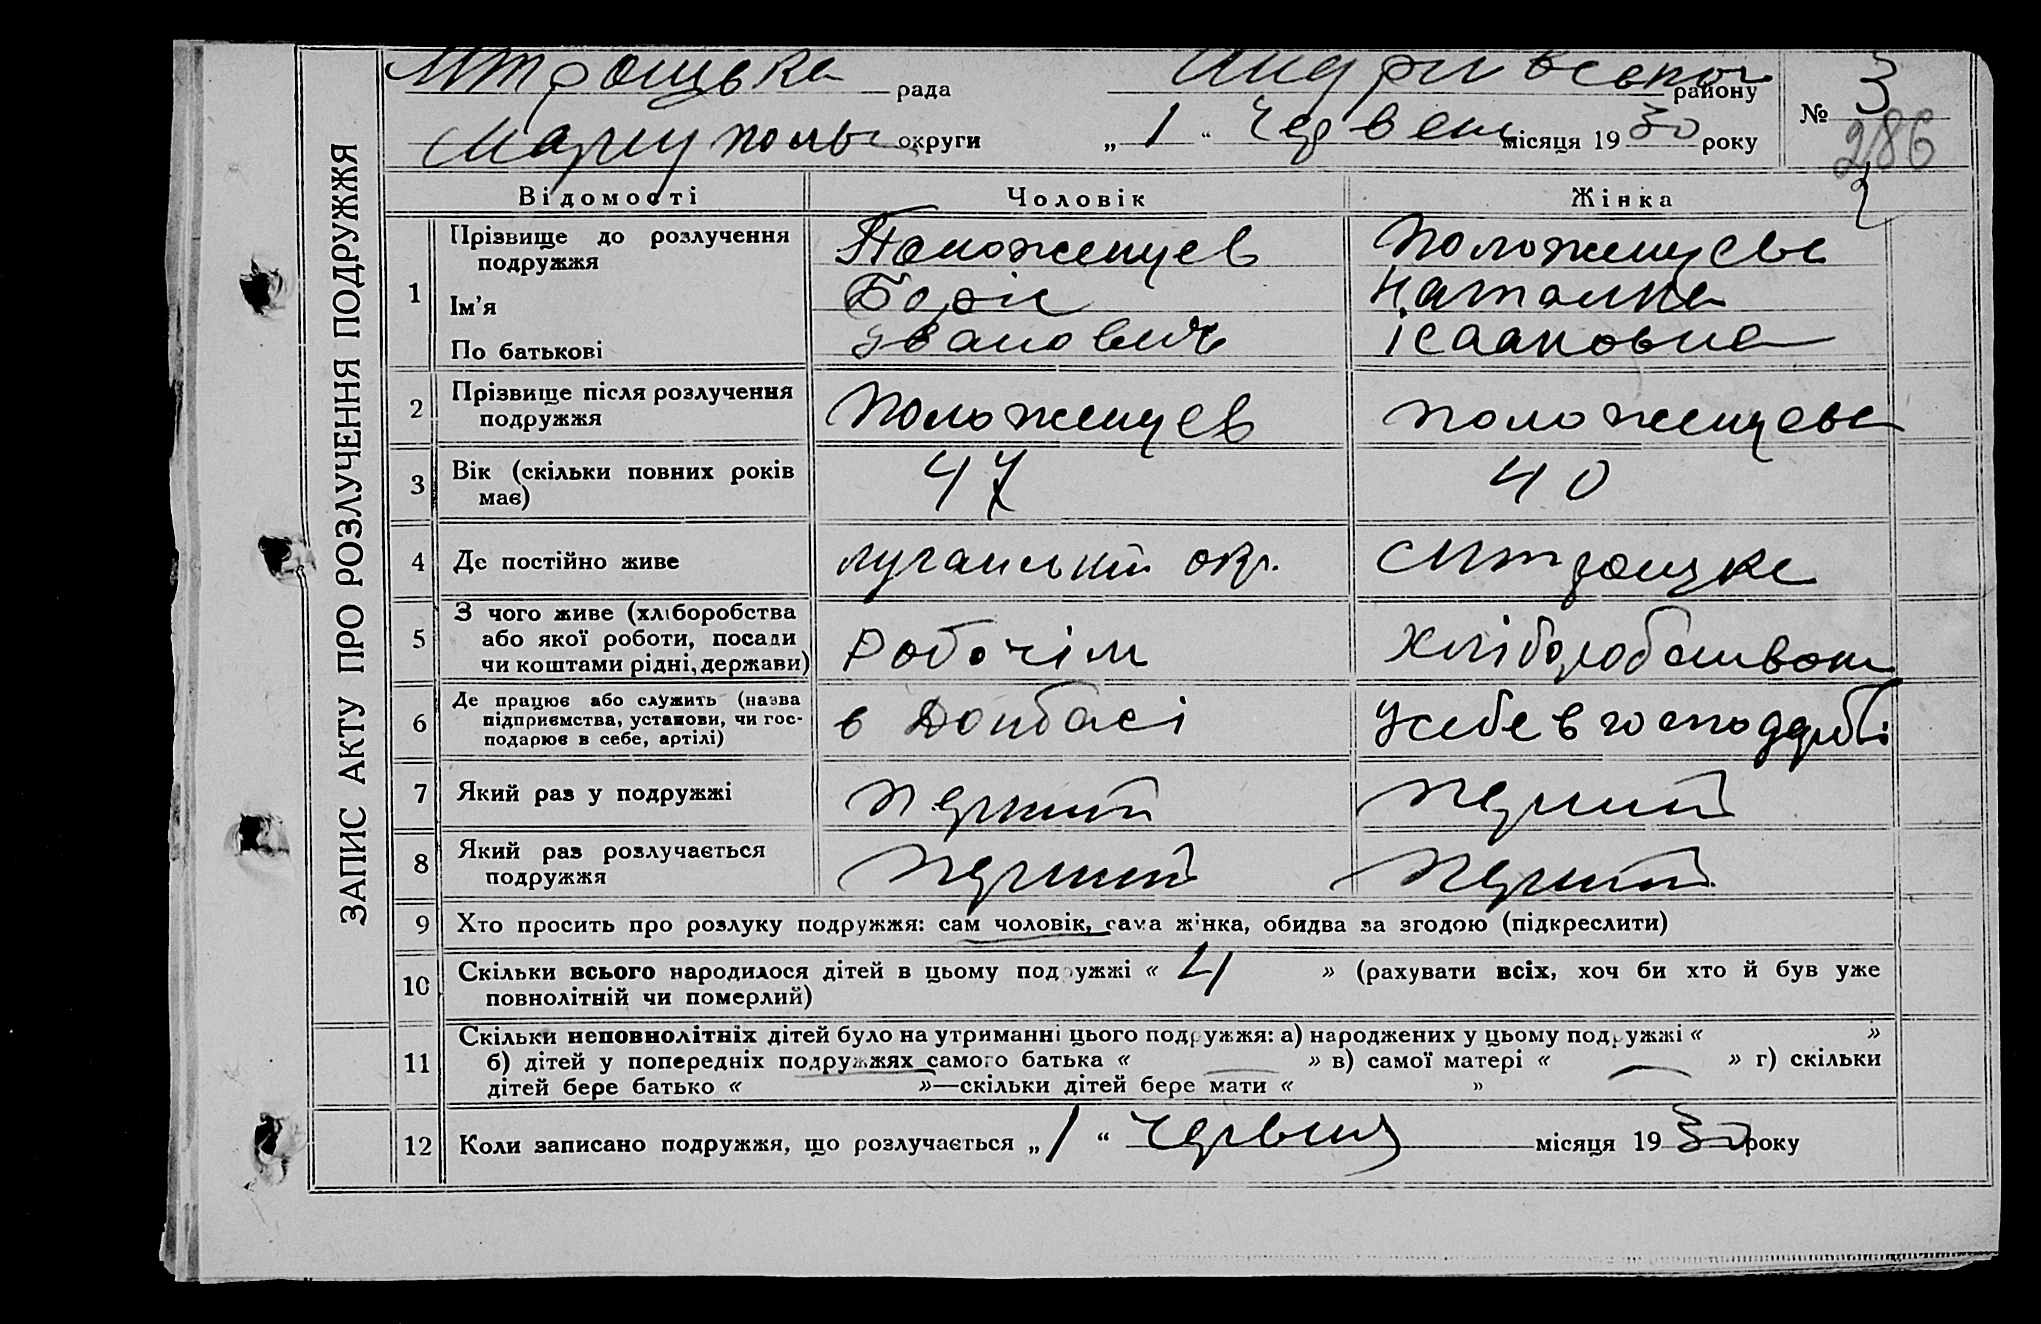 ЗАПИС АКТУ ПРО РОЗЛУЧЕННЯ ПОДРУЖЖЯ
рада Андриївської району № 3
Маріуполь округи „ 1 “ Червень місяця 19 30 року 286
Відомості Чоловік Жінка
1 Прізвище до розлучення подружжя Положенцев Положенцева
Ім'я Боріс Наталка
По батькові Іванович Ісааковна
2 Прізвище після розлучення подружжя Положенцев Положенцева
3 Вік (скільки повних років має) 47 40
4 Де постійно живе луганський окр.
5 З чого живе (хліборобства або якої роботи, посади чи коштами рідні, держави) Робочім Хліборобством
6 Де працює або служить (назва підприємства, установи, чи господарює в себе, артілі) в Донбасі У себе в господарстві
7 Який раз у подружжі перший перший
8 Який раз розлучається подружжя перший перший
9 Хто просить про розлуку подружжя: сам чоловік, сама жінка, обидва за згодою (підкреслити)
10 Скільки всього народилося дітей в цьому подружжі « 4 » (рахувати всіх, хоч би хто й був уже
повнолітній чи померлий)
11 Скільки неповнолітніх дітей було на утриманні цього подружжя: а) народжених у цьому подружжі « »
б) дітей у попередніх подружжях самого батька « » в) самої матері « » г) скільки
дітей бере батько « »—скільки дітей бере мати « »
12 Коли записано подружжя, що розлучається „ 1 “ Червня місяця 19 30 року